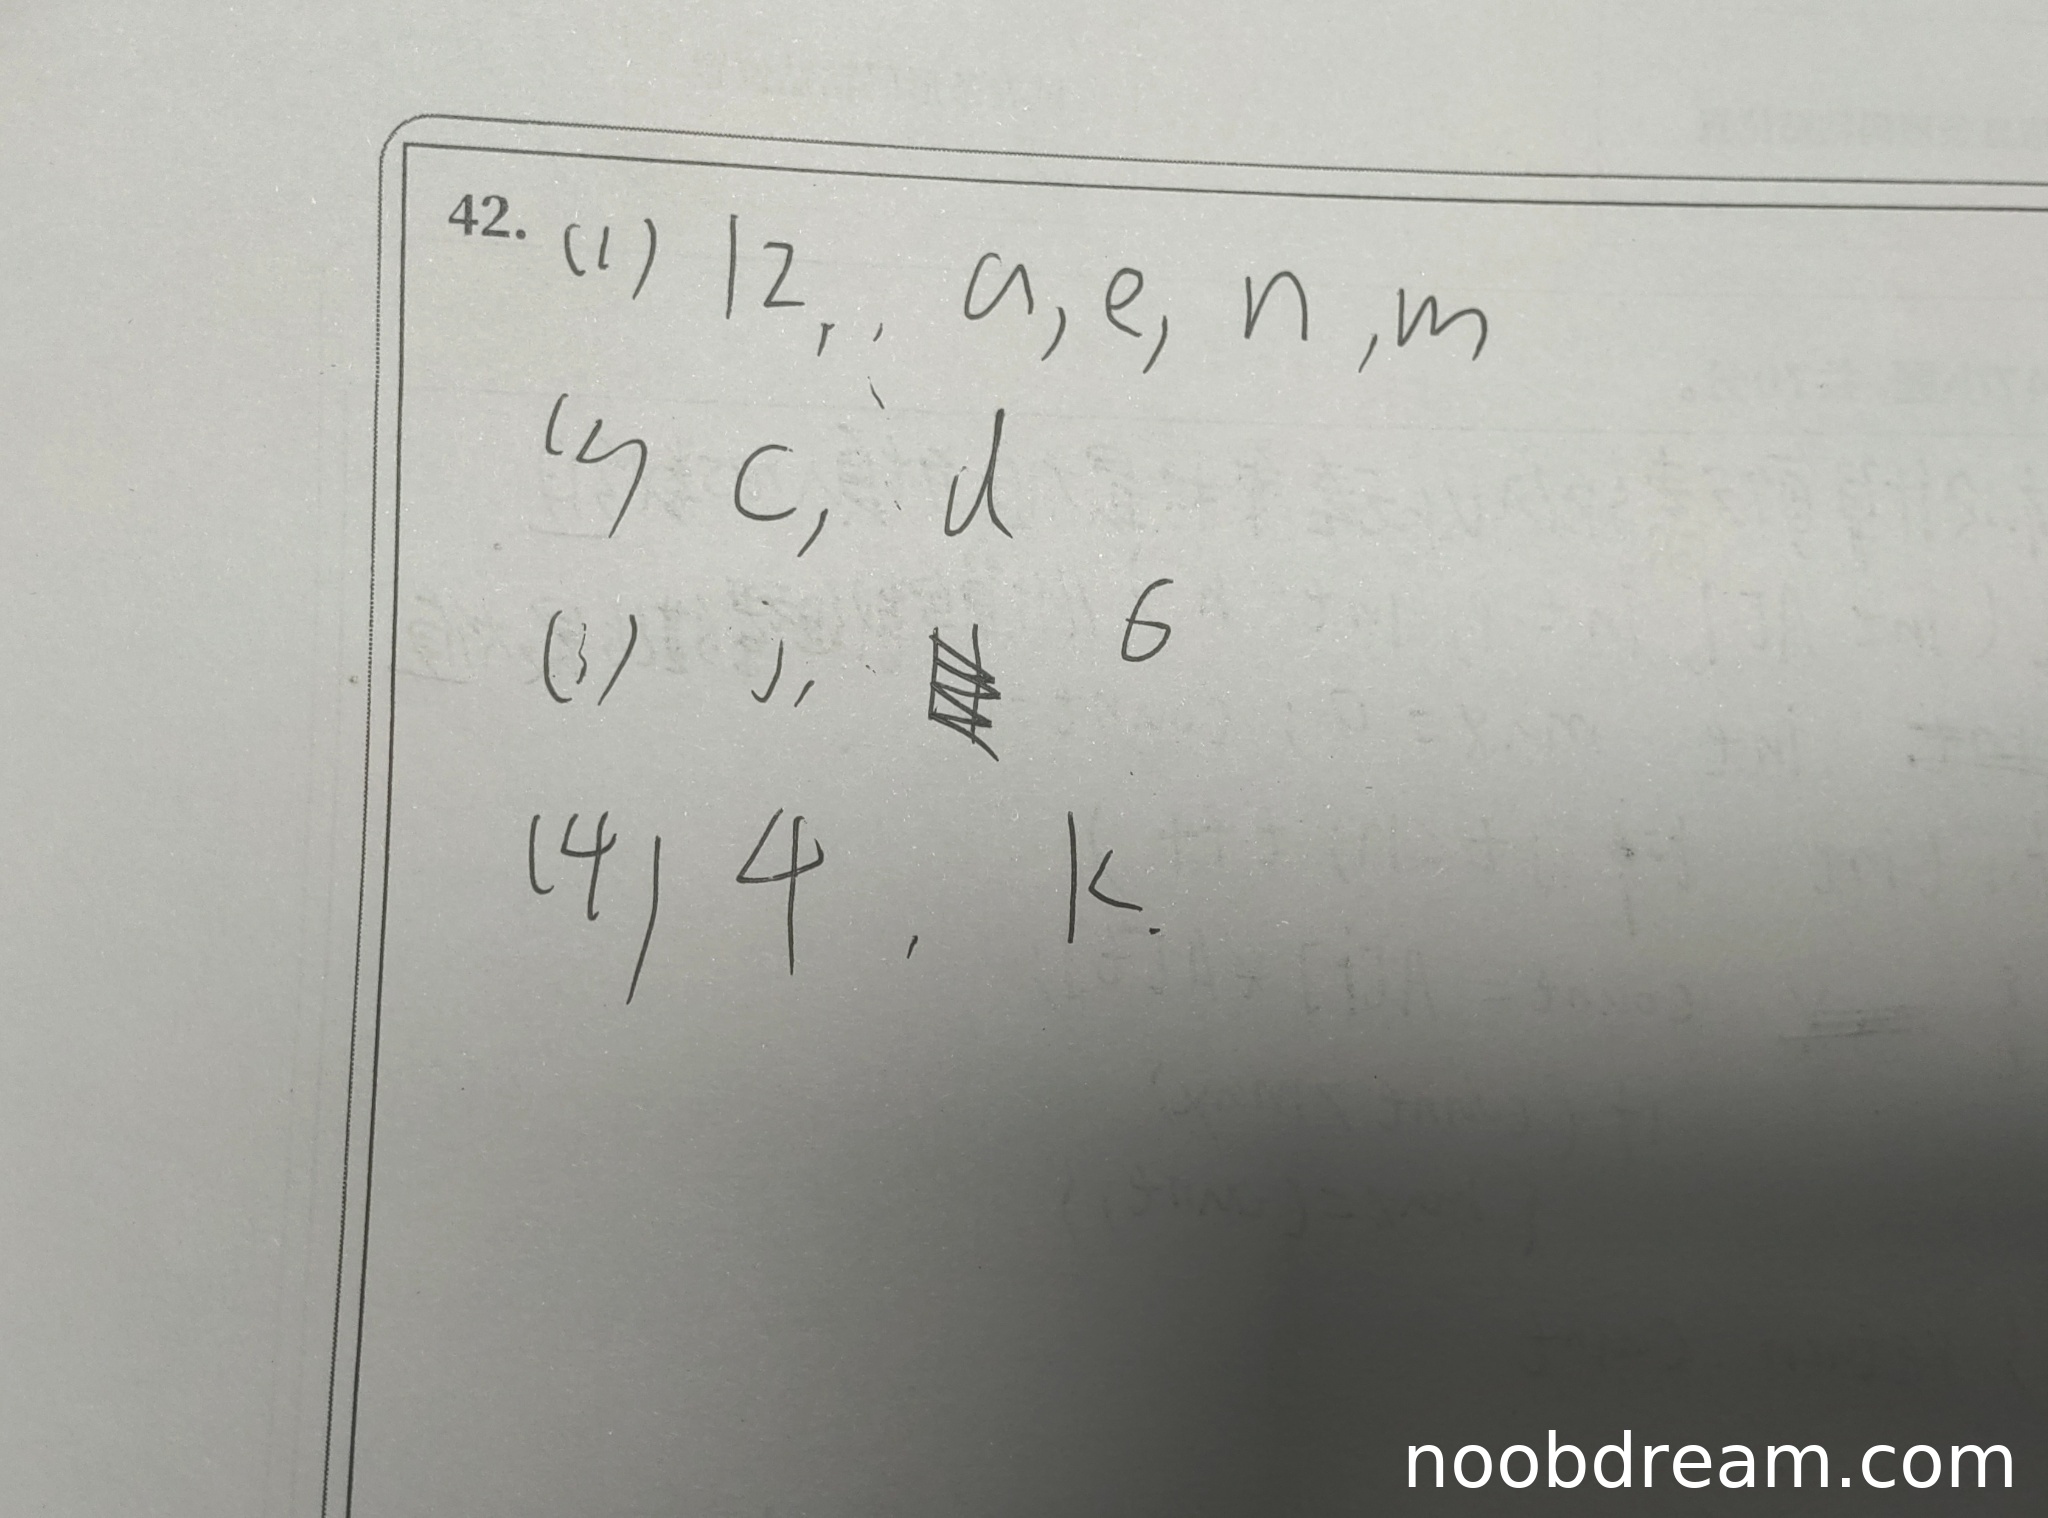 42. (1) 12, , a, e, n, m
(2) c, d
(3) j, 6
(4) 4, k.
noobdream.com